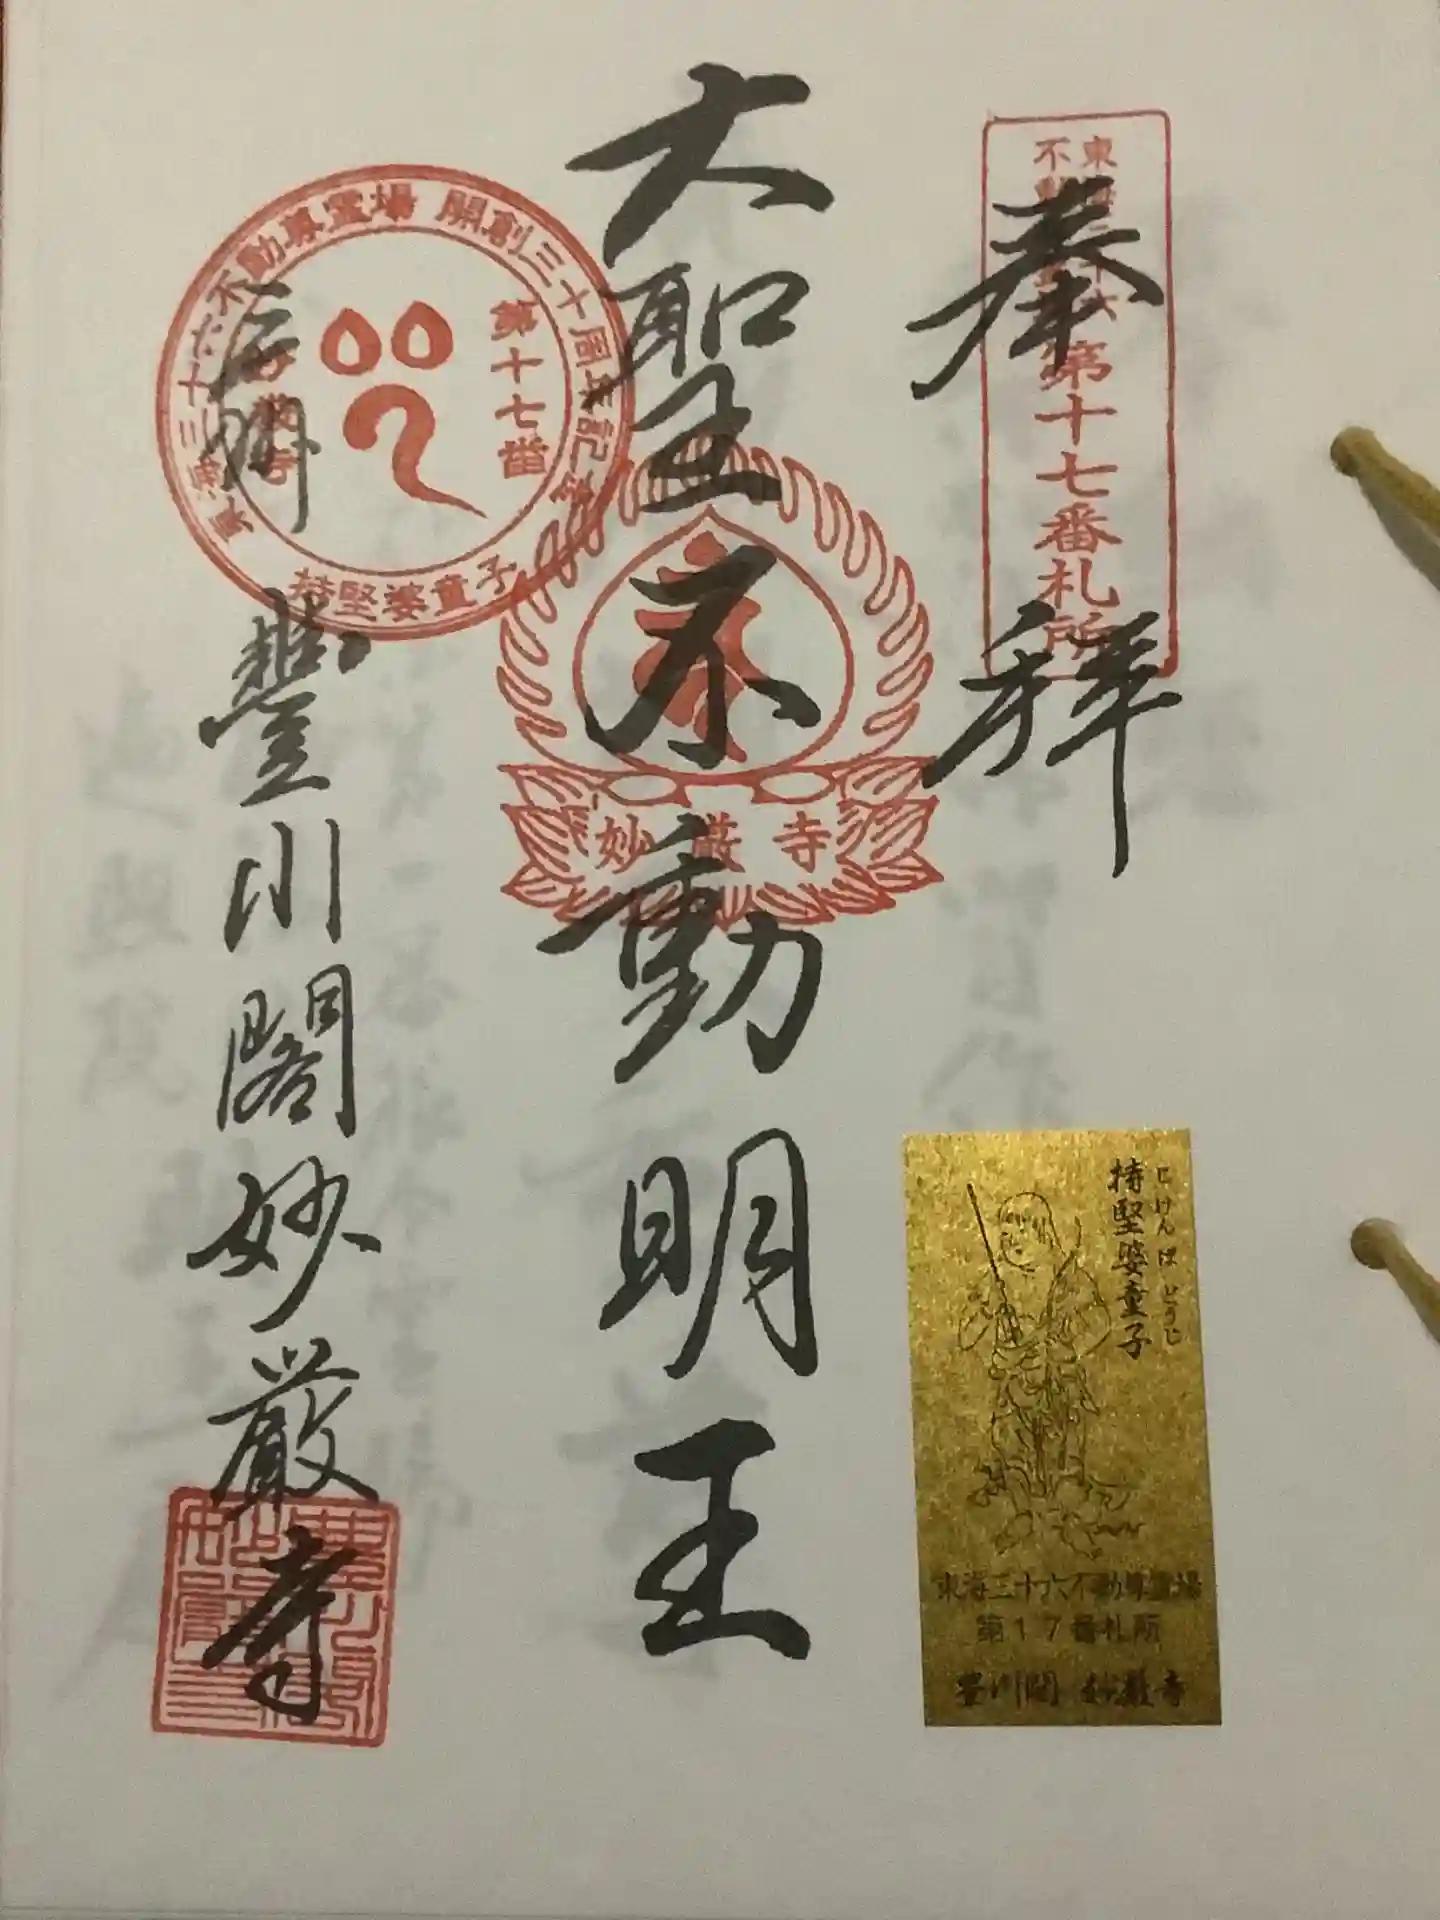 東海三十六
不動尊霊場
第十七番札所
奉拝
大聖不動明王
妙厳寺
東海三十六不動尊霊場 開創三十周年記念
第十七番
妙厳寺
持堅婆童子
三州
豊川閣妙厳寺
じけんばどうじ
持堅婆童子
東海三十六不動尊霊場
第17番札所
豊川閣 妙厳寺